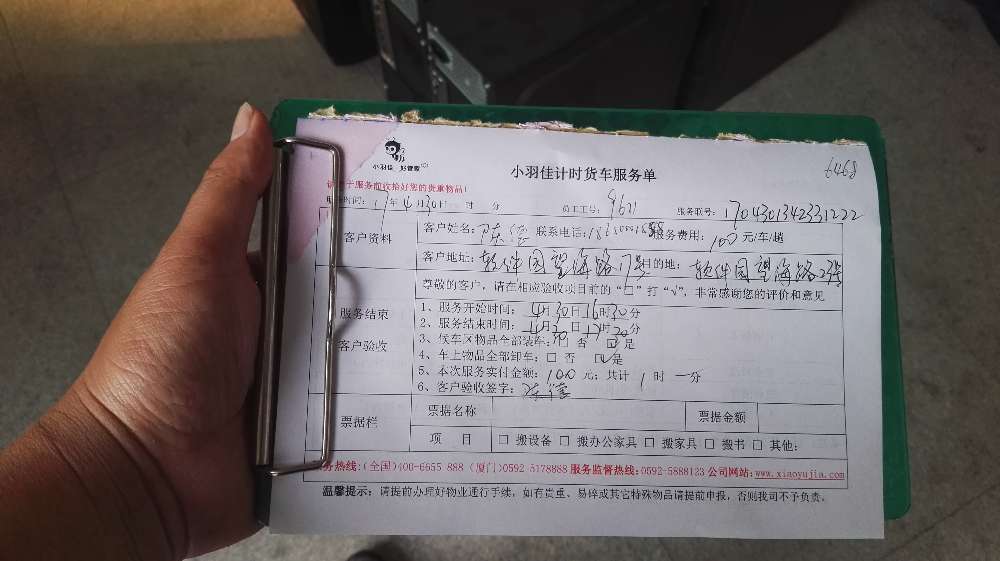 小羽佳 好管家
小羽佳计时货车服务单
6468
请于服务前收拾好您的贵重物品!
服务时间: 17年4月30日 时 分 员工工号: 9621 服务联号: 1704301342331222
客户资料
客户姓名: 联系电话: 服务费用: 100元/车/趟
客户地址: 软件园望海路17号 目的地: 软件园望海路23号
尊敬的客户, 请在相应验收项目前的“□”打“√”, 非常感谢您的评价和意见
服务结束
客户验收
1、服务开始时间: 4月30日16时30分
2、服务结束时间: 4月 日17时30分
3、候车区物品全部装车: □ 否 ☑ 是
4、车上物品全部卸车: □ 否 ☑ 是
5、本次服务实付金额: 100 元; 共计 1 时 一分
6、客户验收签字:
票据栏
票据名称 票据金额
项 目 □ 搬设备 □ 搬办公家具 □ 搬家具 □ 搬书 □ 其他:
服务热线:(全国)400-6655 888 (厦门)0592-5178888 服务监督热线:0592-5888123 公司网站:www.xiaoyujia.com
温馨提示: 请提前办理好物业通行手续, 如有贵重、易碎或其它特殊物品请提前申报, 否则我司不予负责。